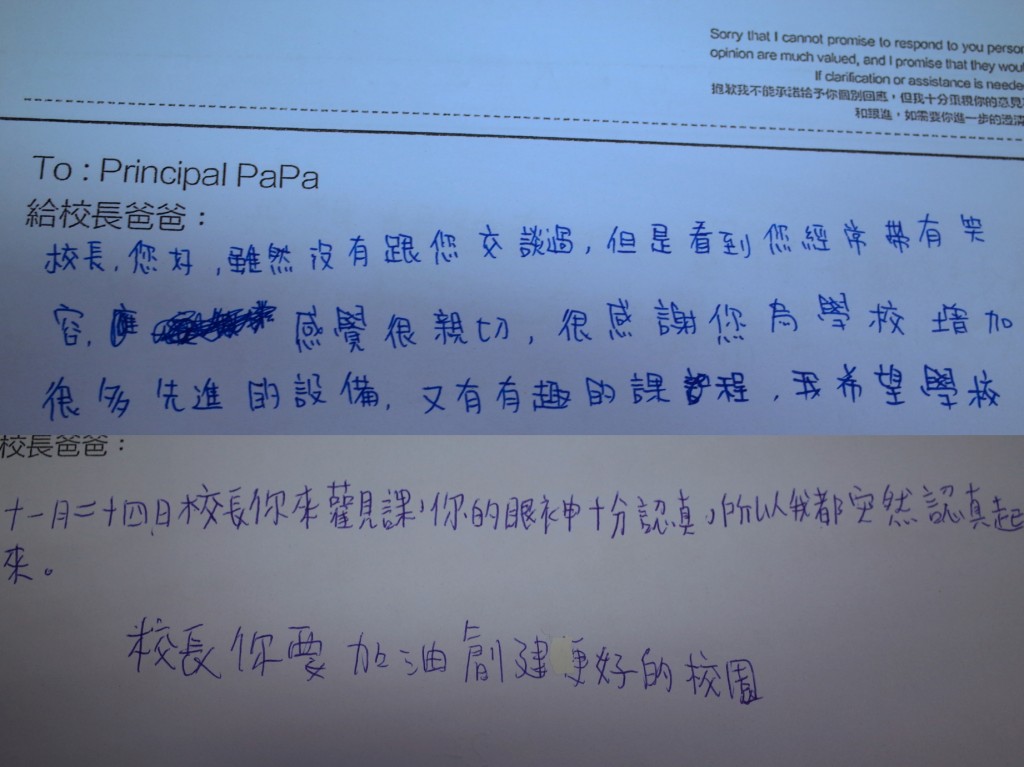 Sorry that I cannot promise to respond to you person
opinion are much valued, and I promise that they woul
If clarification or assistance is neede
抱歉我不能承諾給予你個別回應，但我十分重視你的意見
和跟進，如需要你進一步的澄清
To : Principal PaPa
給校長爸爸：
校長，您好，雖然沒有跟您交談過，但是看到您經常帶有笑
容，感覺很親切，很感謝您為學校增加
很多先進的設備，又有有趣的課程，我希望學校
校長爸爸：
十一月二十四日校長你來觀課，你的眼神十分認真，所以我都突然認真起
來。
校長你要加油創建更好的校園